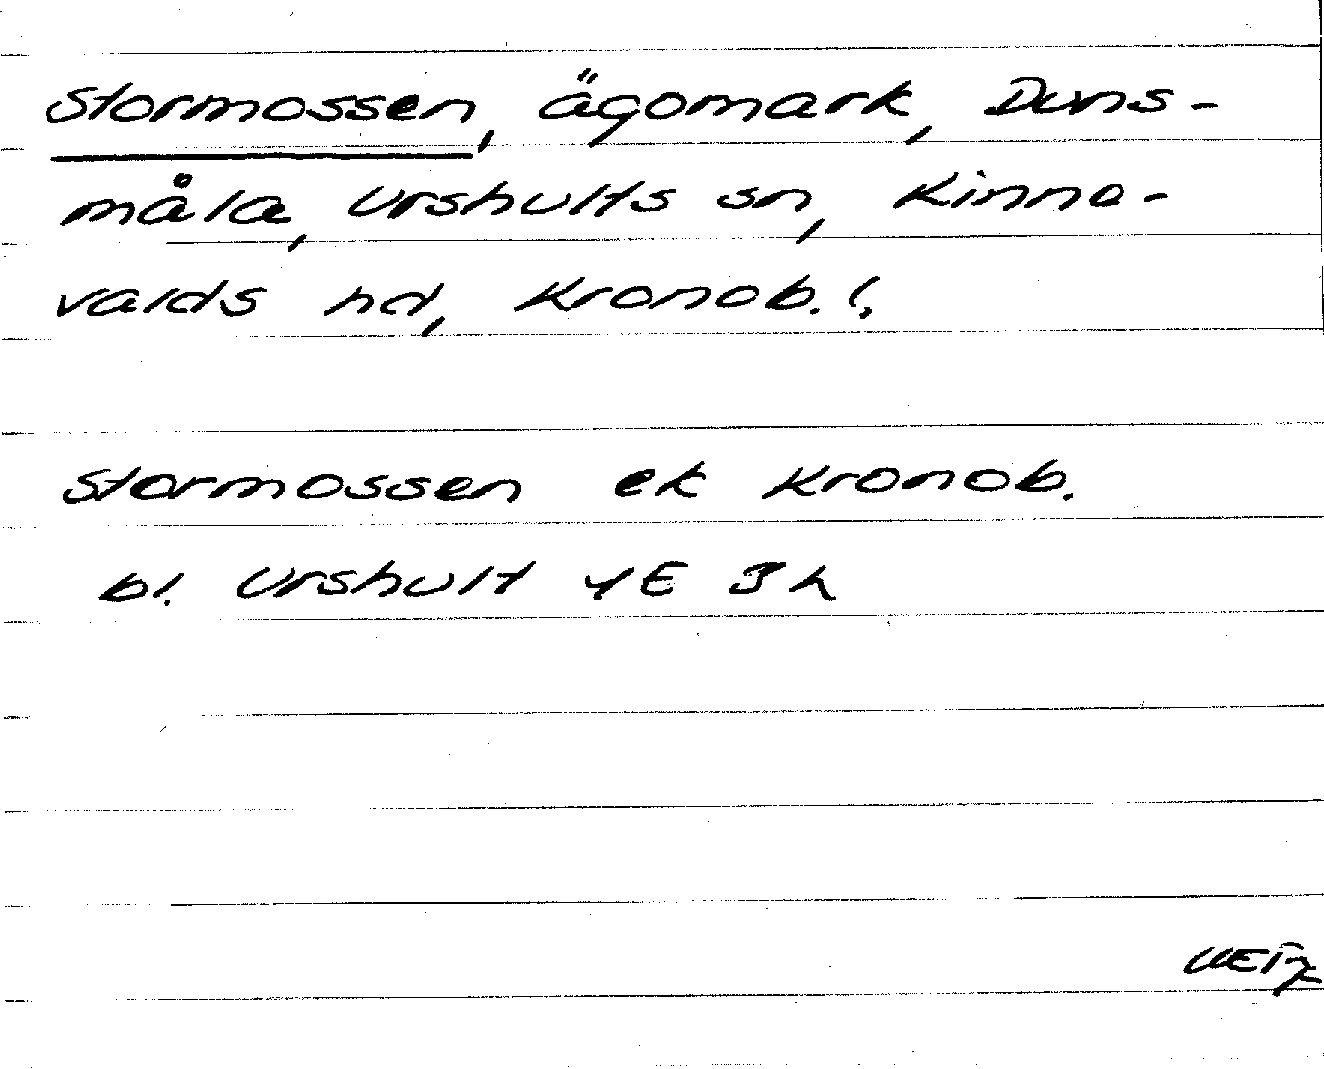 Stormossen, ägomark, Duns-
måla, Urshults sn, Kinne-
valds hd, Kronob. l.
Stormossen ek Kronob.
bl. Urshult 4E 3h